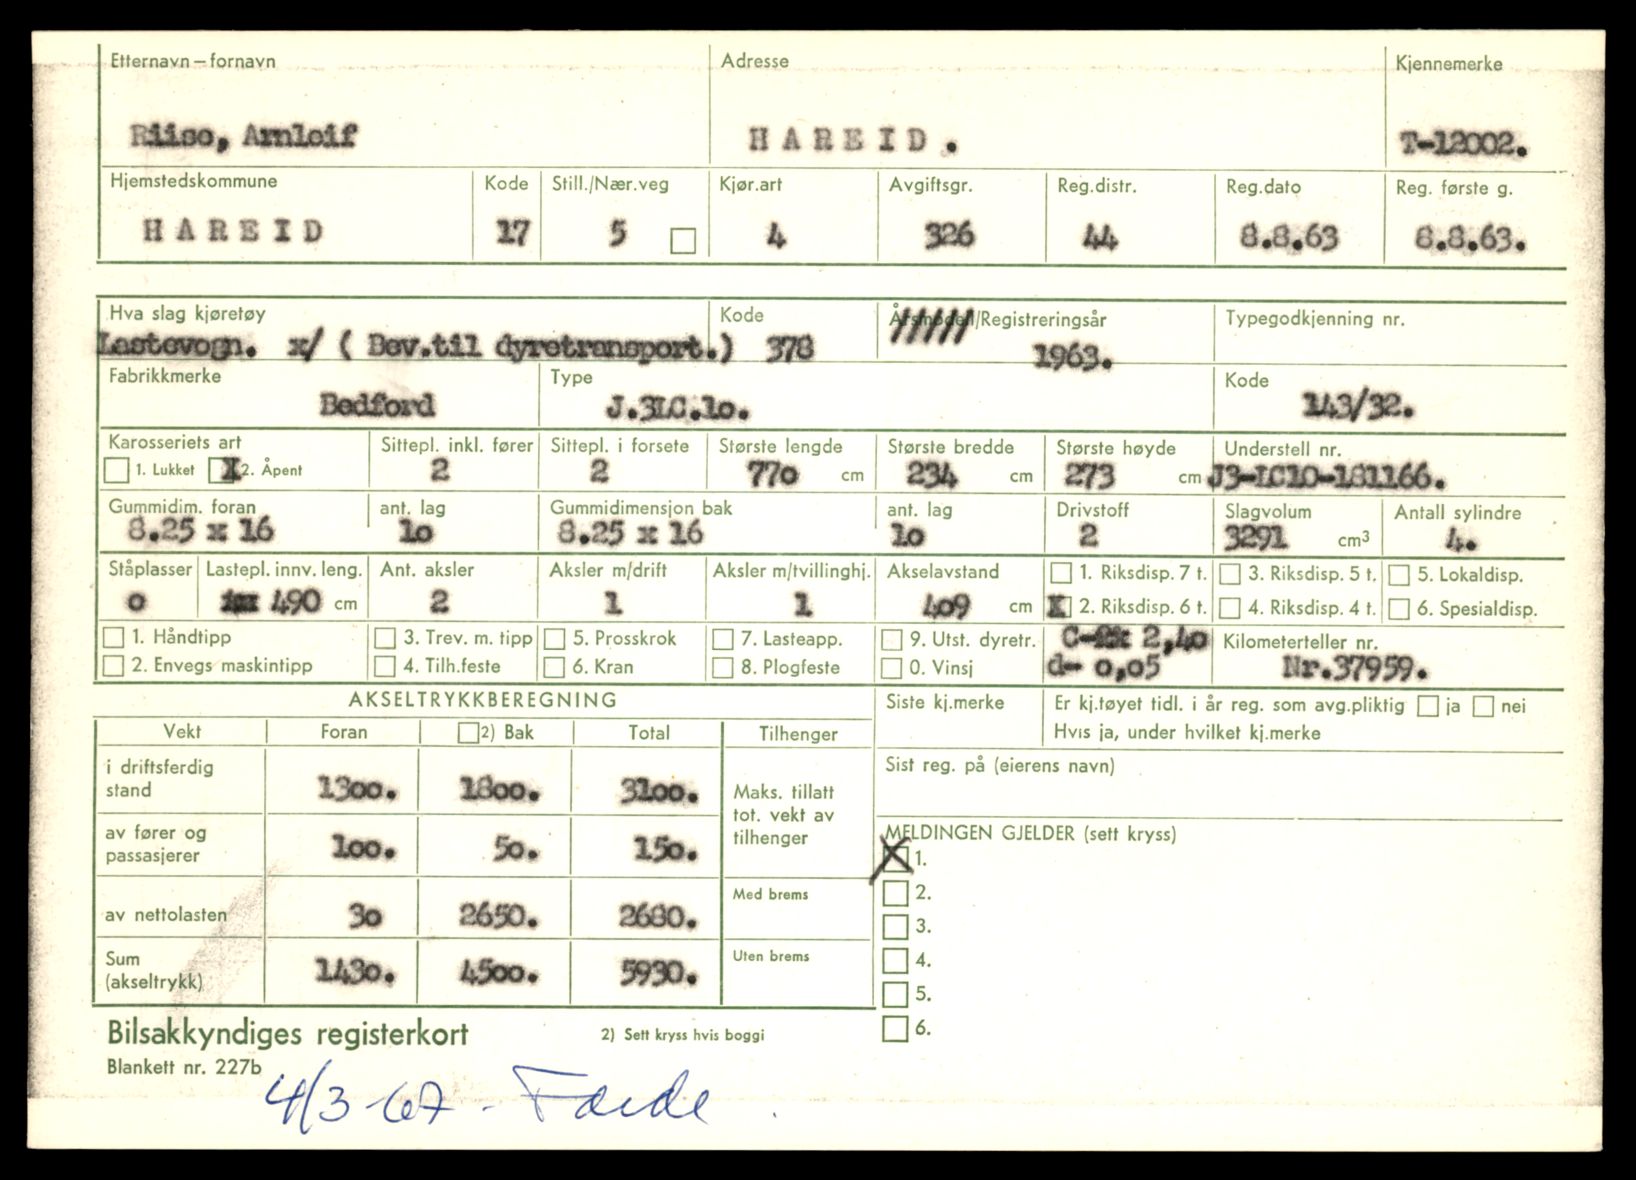 Etternavn–fornavn Adresse Kjennemerke
Riise, Arnleif HAREID. T-12002.
Hjemstedskommune Kode Still./Nær.veg Kjør.art Avgiftsgr. Reg.distr. Reg.dato Reg. første g.
HAREID 17 5 4 326 44 8.8.63 8.8.63.
Hva slag kjøretøy Kode Årsmodell/Registreringsår Typegodkjenning nr.
Lastevogn. x/ ( Bev.til dyretransport.) 378 1963.
Fabrikkmerke Type Kode
Bedford J.3LC.10. 143/32.
Karosseriets art Sittepl. inkl. fører Sittepl. i forsete Største lengde Største bredde Største høyde Understell nr.
1. Lukket X 2. Åpent 2 2 770 cm 234 cm 273 cm J3-LC10-181166.
Gummidim. foran ant. lag Gummidimensjon bak ant. lag Drivstoff Slagvolum Antall sylindre
8.25 x 16 10 8.25 x 16 10 2 3291 cm³ 4.
Ståplasser Lastepl. innv. leng. Ant. aksler Aksler m/drift Aksler m/tvillinghj. Akselavstand 1. Riksdisp. 7 t. 3. Riksdisp. 5 t. 5. Lokaldisp.
0 490 cm 2 1 1 409 cm X 2. Riksdisp. 6 t. 4. Riksdisp. 4 t. 6. Spesialdisp.
1. Håndtipp 3. Trev. m. tipp 5. Prosskrok 7. Lasteapp. 9. Utst. dyretr. C- 2,40 Kilometerteller nr.
2. Envegs maskintipp 4. Tilh.feste 6. Kran 8. Plogfeste 0. Vinsj d- 0,05 Nr.37959.
AKSELTRYKKBEREGNING Siste kj.merke Er kj.tøyet tidl. i år reg. som avg.pliktig ja nei
Vekt Foran 2) Bak Total Tilhenger Hvis ja, under hvilket kj.merke
i driftsferdig stand 1300. 1800. 3100. Maks. tillatt tot. vekt av tilhenger Sist reg. på (eierens navn)
av fører og passasjerer 100. 50. 150. MELDINGEN GJELDER (sett kryss)
X 1.
av nettolasten 30 2650. 2680. Med brems 2.
3.
Sum (akseltrykk) 1430. 4500. 5930. Uten brems 4.
5.
Bilsakkyndiges registerkort 2) Sett kryss hvis boggi 6.
Blankett nr. 227b
4/3-67 - Førde.